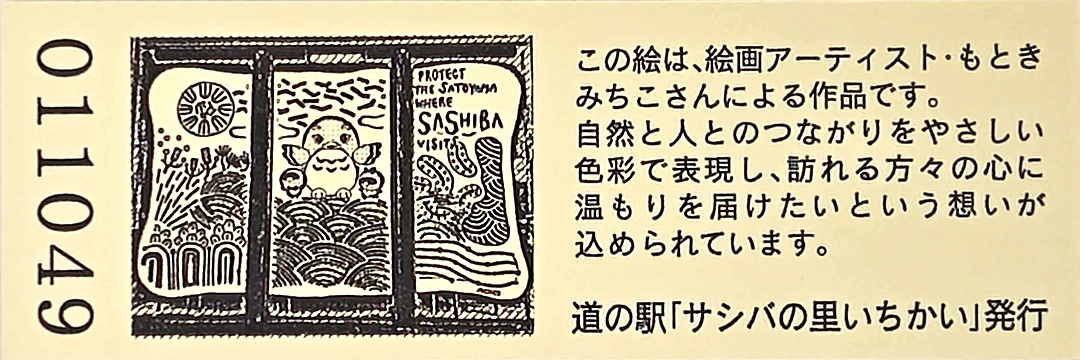 011049
PROTECT
THE SATOYAMA
WHERE
SASHIBA
VISIT
この絵は、絵画アーティスト・もとき
みちこさんによる作品です。
自然と人とのつながりをやさしい
色彩で表現し、訪れる方々の心に
温もりを届けたいという想いが
込められています。
道の駅「サシバの里いちかい」発行